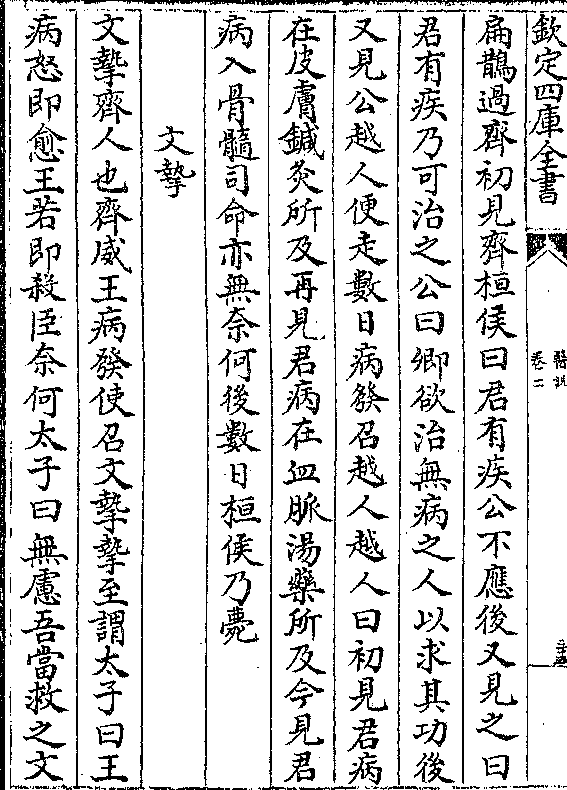 欽定四庫全書
醫説
卷二
扁鵲過齊初見齊桓侯曰君有疾公不應後又見之曰
君有疾乃可治之公曰卿欲治無病之人以求其功後
又見公越人便走數日病發召越人越人曰初見君病
在皮膚鍼灸所及再見君病在血脈湯藥所及今見君
病入骨髓司命亦無奈何後數日桓侯乃薨
文摯
文摯齊人也齊威王病發使召文摯摯至謂太子曰王
病怒即愈王若即殺臣奈何太子曰無慮吾當救之文